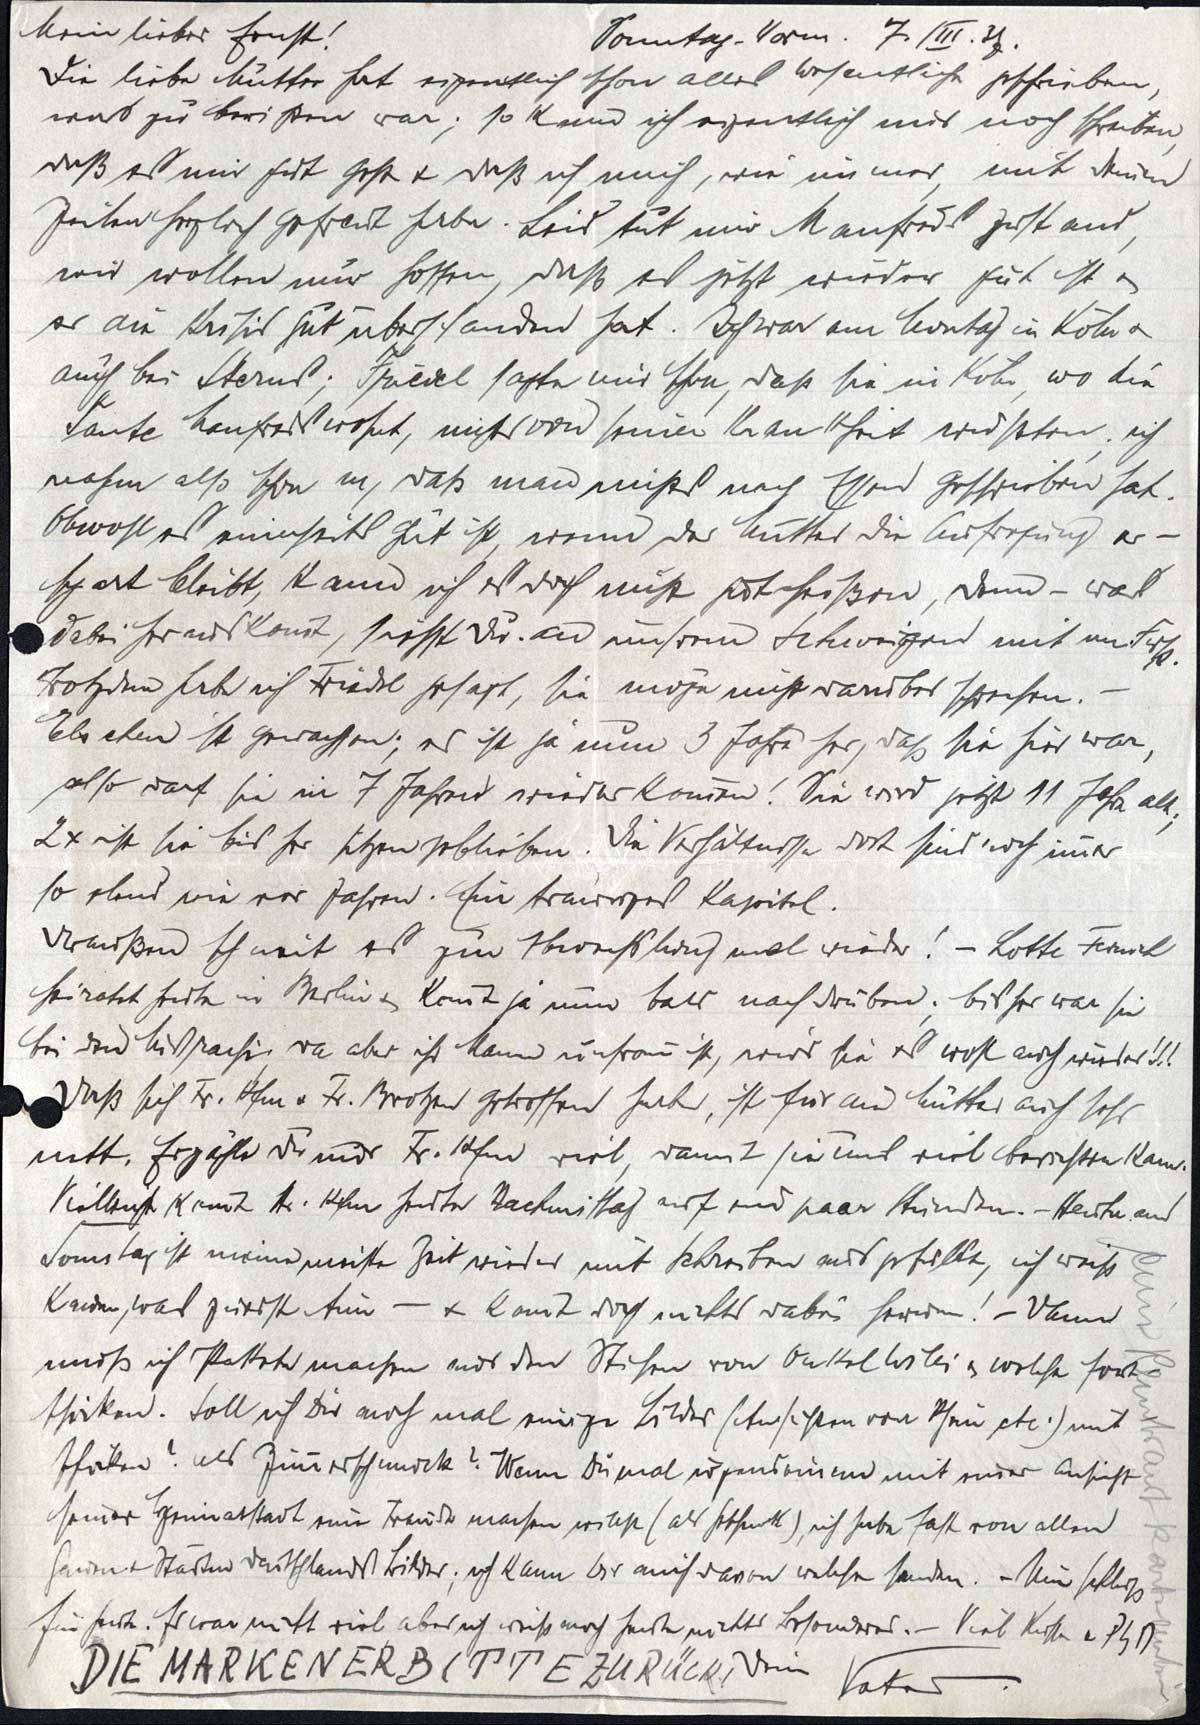 Mein lieber Ernst! Sonntag-Vorm. 7. III. 37.
Die liebe Mutter hat eigentlich schon alles wesentliche geschrieben,
was zu berichten war; so kann ich eigentlich nur noch schreiben,
daß es mir gut geht & daß ich mich, wie immer, mit Deinen
Zeilen herzlich gefreut habe. Leid tut mir Manfreds Zustand,
wir wollen nur hoffen, daß es jetzt wieder gut ist &
er die Krisis gut überstanden hat. Ich war am Montag in Köln &
auch bei Sterns; Friedel sagte mir schon, daß sie in Köln, wo die
Tante Manfreds wohnt, nichts von seiner Krankheit wüßten; ich
nahm also schon an, daß man nichts nach Essen geschrieben hat.
Obwohl es einerseits gut ist, wenn der Mutter die Aufregung er-
spart bleibt, kann ich es doch nicht gutheißen, denn - was
dabei herauskommt, siehst Du an unserem Schweigen mit
Trotzdem habe ich Friedel gesagt, sie möge nicht darüber sprechen. -
Elschen ist gewachsen; es ist ja nun 3 Jahre her, daß sie hier war,
also darf sie in 7 Jahren wieder kommen! Sie wird jetzt 11 Jahre alt;
2x ist sie bisher sitzen geblieben. Die Verhältnisse dort sind noch immer
so elend wie vor Jahren. Ein trauriges Kapitel.
Draußen schneit es zur Abwechslung mal wieder! - Lotte
heiratet heute in Berlin & kommt ja nun bald nach drüben; bisher war sie
bei den da aber ihr Mann ist, wird sie es wohl auch wieder!!!
Daß sich Fr. Hfm & Fr. Brotzen getroffen haben, ist für die Mutter auch sehr
nett. Erzähle Du nur Fr. Hfm viel, damit sie uns viel berichten kann.
Vielleicht kommt Hr. Hfm heute Nachmittag auf ein paar Stunden. - Heute am
Sonntag ist meine meiste Zeit wieder mit Schreiben ausgefüllt, ich weiß
kaum, was zuerst tun - & kommt doch nichts dabei heraus! - Dann
muß ich Pakete machen aus den Stichen von Onkel Willi & welche fort-
schicken. Soll ich Dir auch mal einige Bilder (Ansichten vom Rhein etc.) mit
schicken? als Zimmerschmuck? Wenn Du mal irgendeinem mit einer Ansicht
seiner Heimatstadt eine Freude machen willst (als Geschenk), ich habe fast von allen
& Städten Deutschlands Bilder; ich kann Dir auch davon welche senden. - Nun Schluß
für heute. Es war nicht viel aber ich weiß auch heute nichts Besonderes. - Viel Küsse &
DIE MARKEN ERBITTE ZURÜCK! Dein Vater